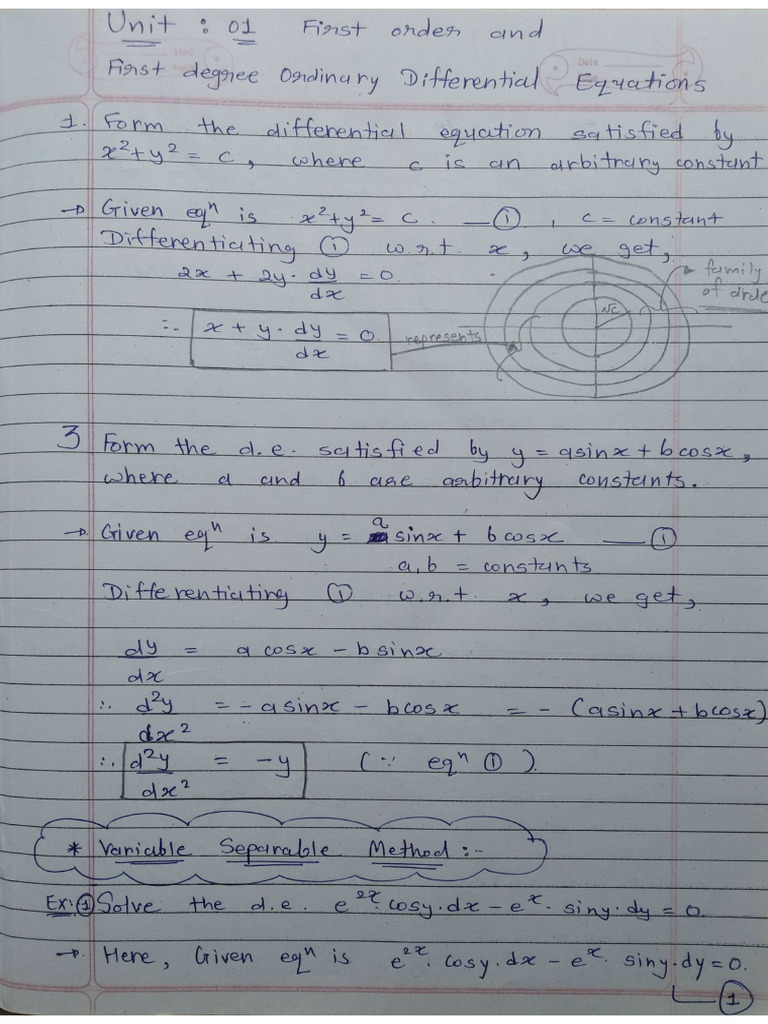 Unit : 01 First order and
First degree Ordinary Differential Equations
Date
1. Form the differential equation satisfied by
x² + y² = c, where c is an arbitrary constant
→ Given eqⁿ is x² + y² = c. —①, c = constant
Differentiating ① w.r.t. x, we get,
2x + 2y · dy/dx = 0
family
of circle
√c
∴ x + y · dy/dx = 0 represents
3 Form the d.e. satisfied by y = asinx + bcosx,
where a and b are arbitrary constants.
→ Given eqⁿ is y = a sinx + bcosx —①
a, b = constants
Differentiating ① w.r.t. x, we get,
dy/dx = a cosx – b sinx
∴ d²y/dx² = – asinx – bcosx = – (asinx + bcosx)
∴ d²y/dx² = –y (∵ eqⁿ ①).
* Variable Separable Method :-
Ex:① Solve the d.e. e²ˣ · cosy · dx – eˣ · siny · dy = 0.
→ Here, Given eqⁿ is e²ˣ · cosy · dx – eˣ · siny · dy = 0.
①